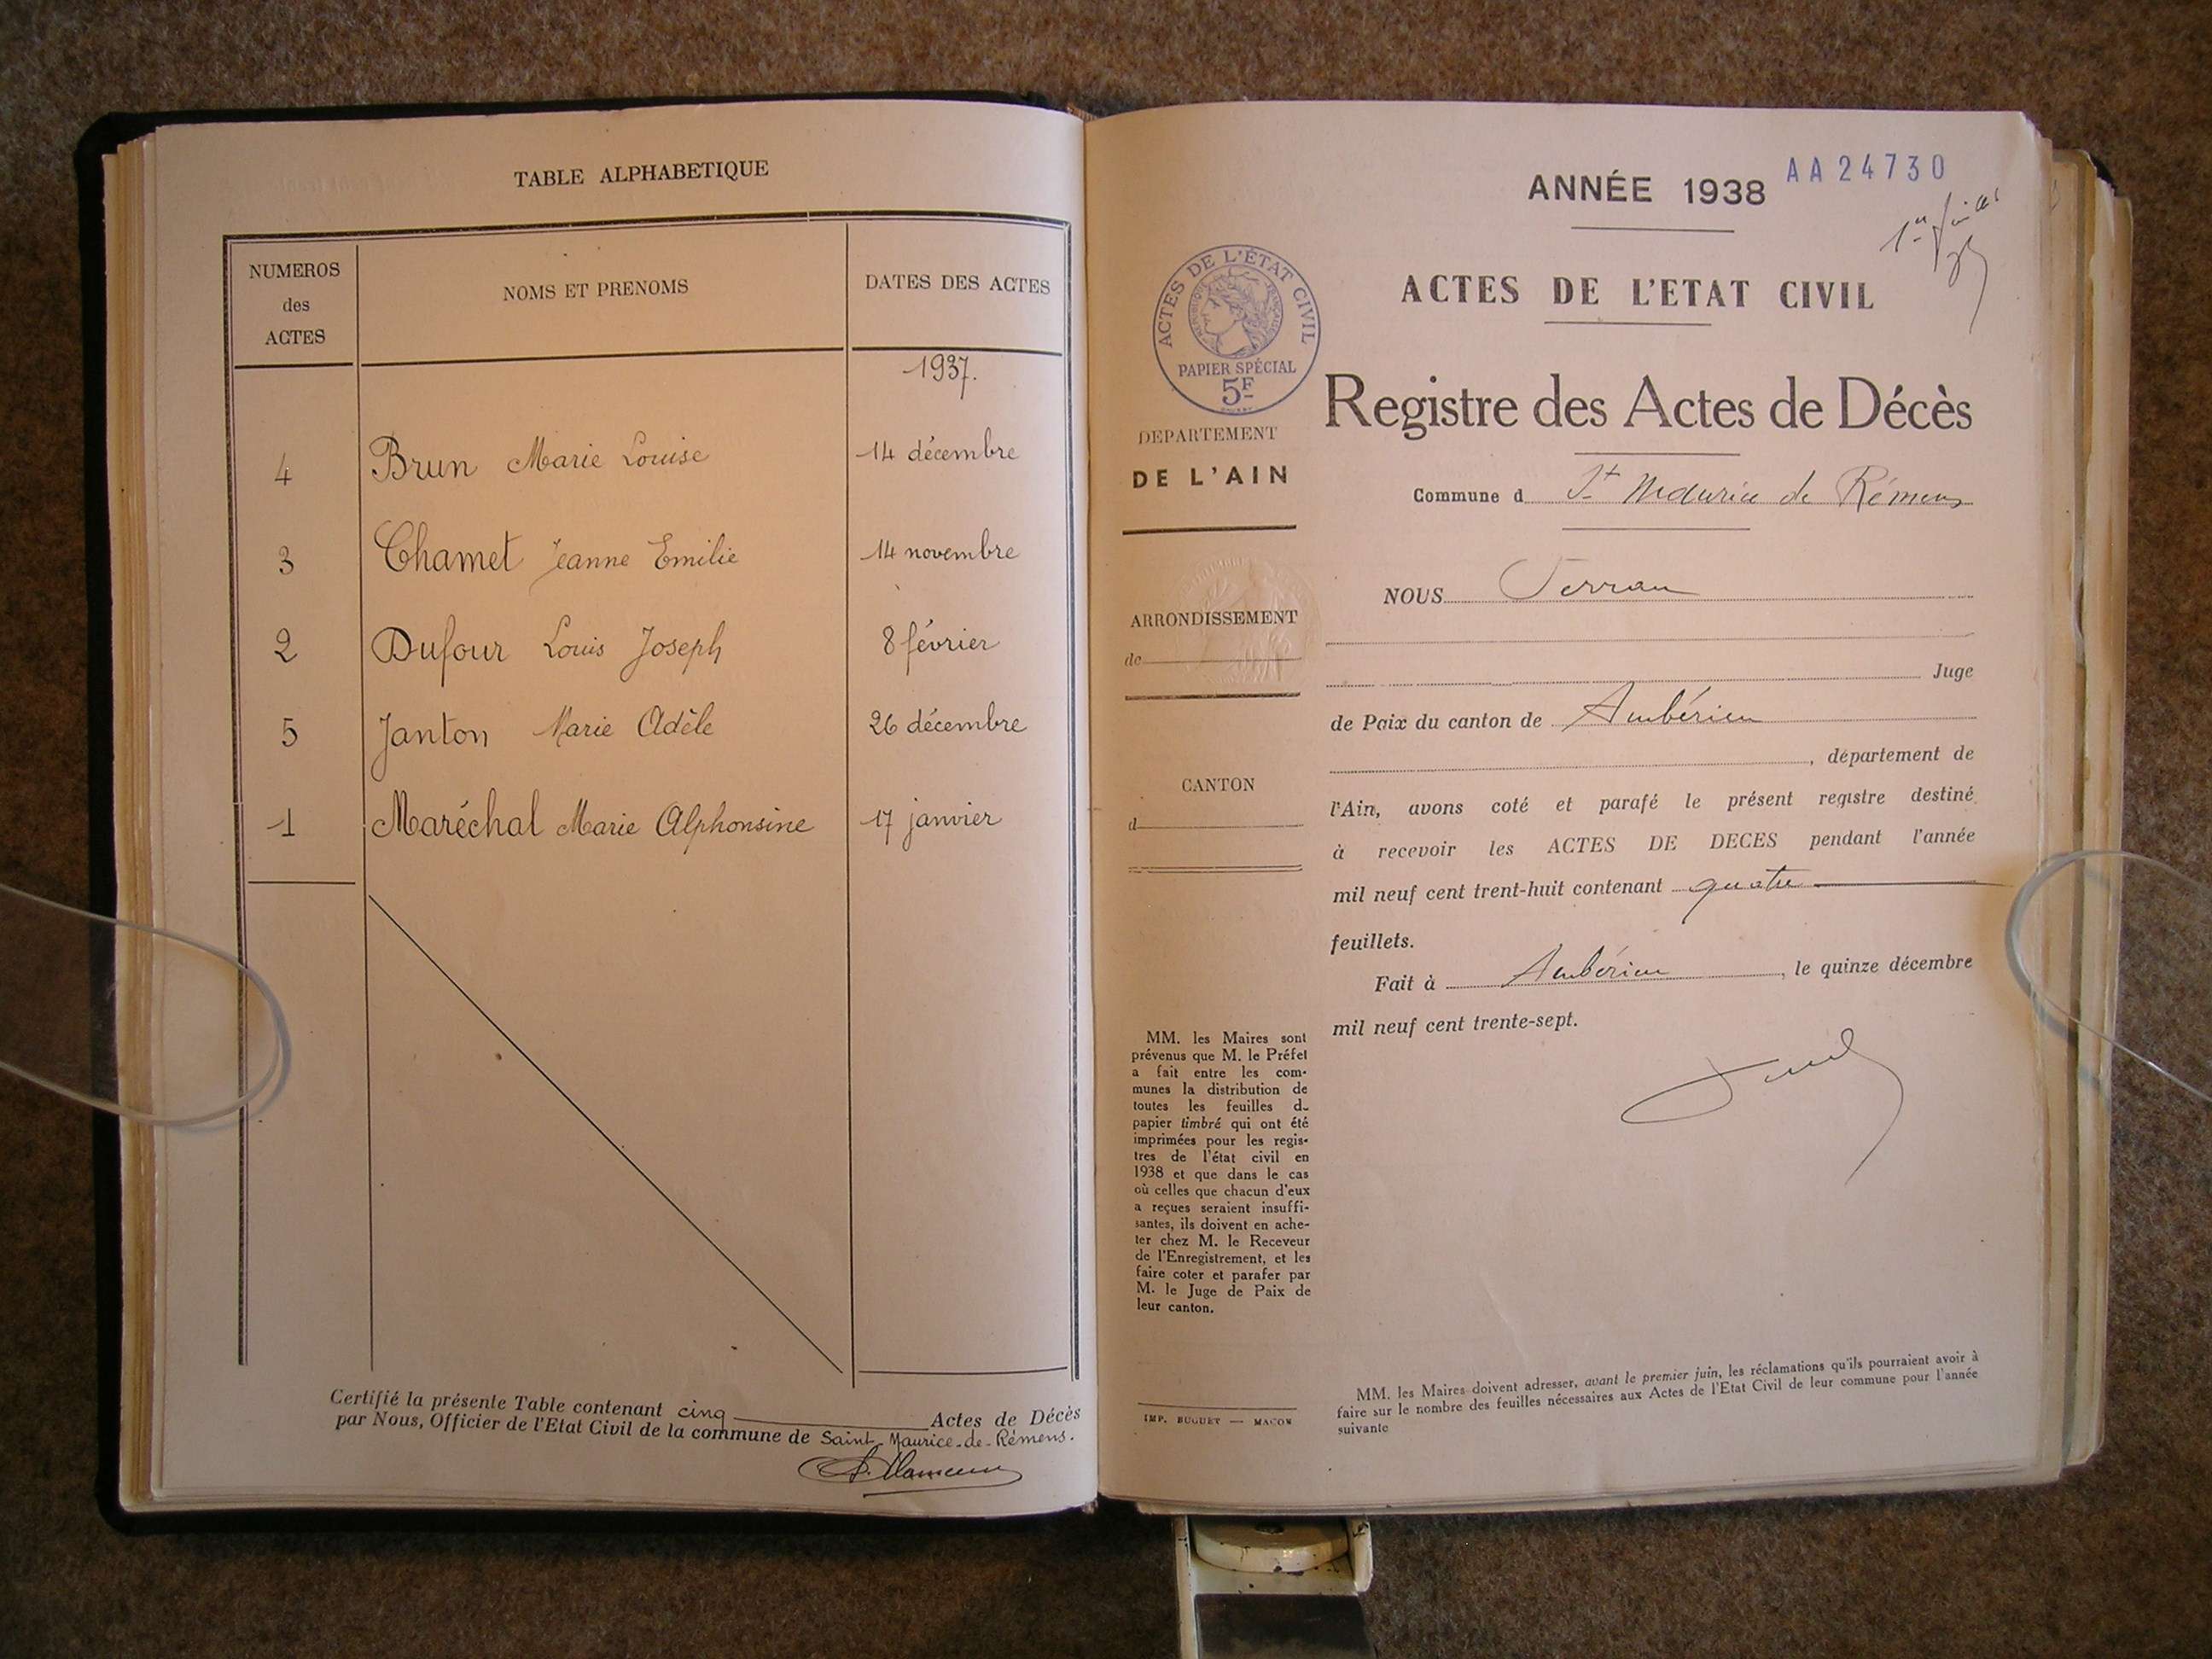 TABLE ALPHABETIQUE
NUMEROS
des
ACTES
NOMS ET PRENOMS
DATES DES ACTES
1937.
4 Brun Marie Louise 14 décembre
3 Chamet Jeanne Emilie 14 novembre
2 Dufour Louis Joseph 8 février
5 Janton Marie Adèle 26 décembre
1 Maréchal Marie Alphonsine 17 janvier
Certifié la présente Table contenant cinq Actes de Décès
par Nous, Officier de l'Etat Civil de la commune de Saint-Maurice-de-Rémens.
ANNÉE 1938 AA24730
ACTES DE L'ETAT CIVIL
ACTES DE L'ÉTAT CIVIL
RÉPUBLIQUE FRANÇAISE
PAPIER SPÉCIAL
5F
Registre des Actes de Décès
DEPARTEMENT
DE L'AIN
Commune d St Maurice de Rémens
NOUS
ARRONDISSEMENT
de
Juge
de Paix du canton de Ambérieu
, département de
CANTON
d
l'Ain, avons coté et parafé le présent registre destiné
à recevoir les ACTES DE DECES pendant l'année
mil neuf cent trent-huit contenant quatre
feuillets.
Fait à Ambérieu, le quinze décembre
mil neuf cent trente-sept.
MM. les Maires sont
prévenus que M. le Préfet
a fait entre les com-
munes la distribution de
toutes les feuilles d
papier timbré qui ont été
imprimées pour les regis-
tres de l'état civil en
1938 et que dans le cas
où celles que chacun d'eux
a reçues seraient insuffi-
santes, ils doivent en ache-
ter chez M. le Receveur
de l'Enregistrement, et les
faire coter et parafer par
M. le Juge de Paix de
leur canton.
IMP. BUGUET — MACON
MM. les Maires doivent adresser, avant le premier juin, les réclamations qu'ils pourraient avoir à
faire sur le nombre des feuilles nécessaires aux Actes de l'Etat Civil de leur commune pour l'année
suivante